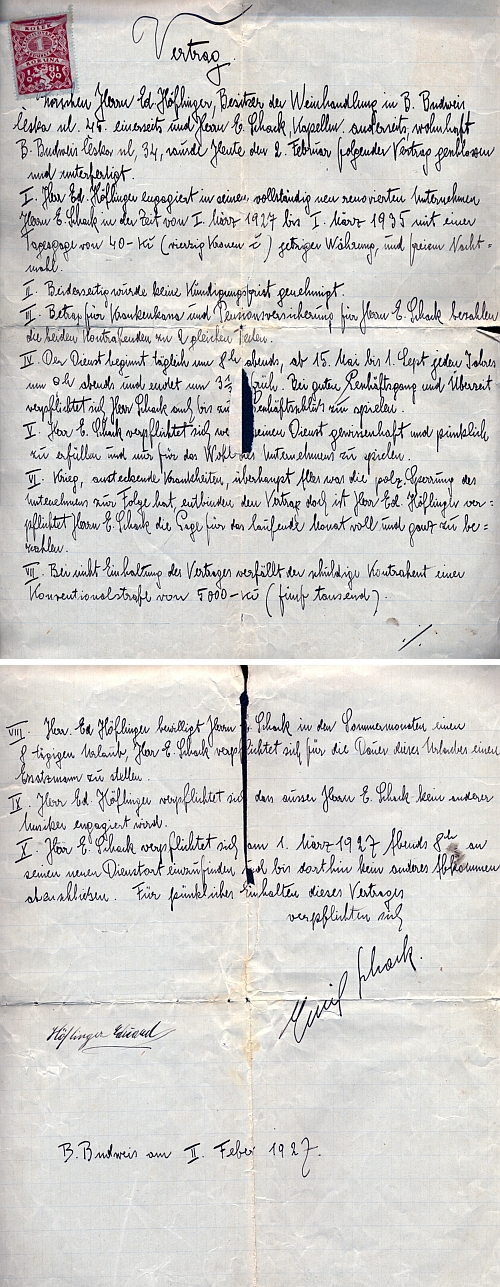 KOLEK
1
KORUNA
Vertrag.
Zwischen Herrn Ed. Höflinger, Besitzer der Weinhandlung in B. Budweis
Česká ul. 45. einerseits und Herrn E. Schack, Kapellm. anderseits, wohnhaft
B. Budweis Česká ul, 34, wurde heute den 2. Februar folgender Vertrag geschlossen
und unterfertigt.
I. Herr Ed. Höflinger engagiert in seinen vollständig neu renovierten Unternehmen
Herrn E. Schack in der Zeit vom I. März 1927 bis I. März 1935 mit einer
Tagesgage von 40- Kč (vierzig Kronen č) jetziger Währung, und freiem Nacht=
mahl.
II. Beiderseitig wurde keine Kündigungsfrist genehmigt.
III. Betrag für Krankenkassa und Pensionsversicherung für Herrn E. Schack bezahlen
die beiden Kontrahenden zu 2 gleichen Teilen.
IV. Der Dienst beginnt täglich um 8h abends, ab 15. Mai bis 1. Sept jeden Jahres
um 9h abends und endet um 3 früh. Bei guten Geschäftsgang und Überzeit
verpflichtet sich Herr Schack auch bis zu Geschäftsschluß zu spielen.
V. Herr E. Schack verpflichtet sich seinen Dienst gewissenhaft und pünktlich
zu erfüllen und nur für das Wohl des Unternehmens zu spielen.
VI. Krieg, ansteckende Krankheiten, überhaupt Alles was die poliz. Sperrung des
Unternehmens zur Folge hat, entbinden den Vertrag doch ist Herr Ed. Höflinger ver=
pflichtet Herrn E. Schack die Gage für das laufende Monat voll und ganz zu be=
zahlen.
VII. Bei nicht Einhaltung des Vertrages verfällt der schuldige Kontrahent einer
Konventionalstrafe von 5000- Kč (fünf tausend).
./.
VIII. Herr Ed. Höflinger bewilligt Herrn E. Schack in den Sommermonaten einen
8 tägigen Urlaub, Herr E. Schack verpflichtet sich für die Dauer dieses Urlaubes einen
Ersatzmann zu stellen.
IX. Herr Ed. Höflinger verpflichtet sich das ausser Herrn E. Schack kein anderer
Musiker engagiert wird.
X. Herr E. Schack verpflichtet sich am 1. März 1927 Abends 8h an
seinen neuen Dienstort einzufinden und bis dorthin kein anderes Abkommen
abzuschließen. Für pünkliches Einhalten dieses Vertrages
verpflichten sich
Emil Schack.
Höflinger Eduard
B. Budweis am II. Feber 1927.